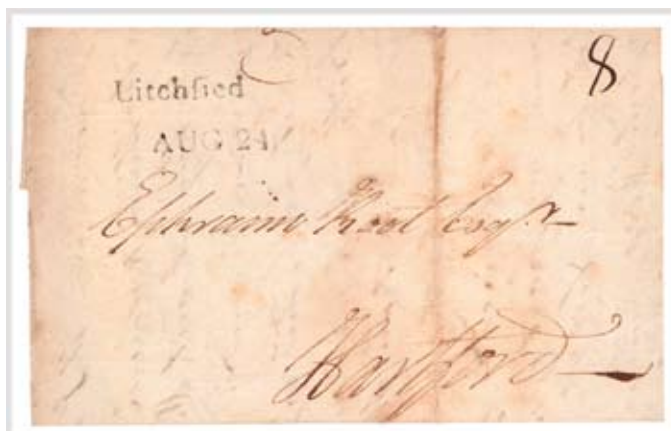 8
Litchfied
AUG 24
Ephraim Root Esqr
Hartford